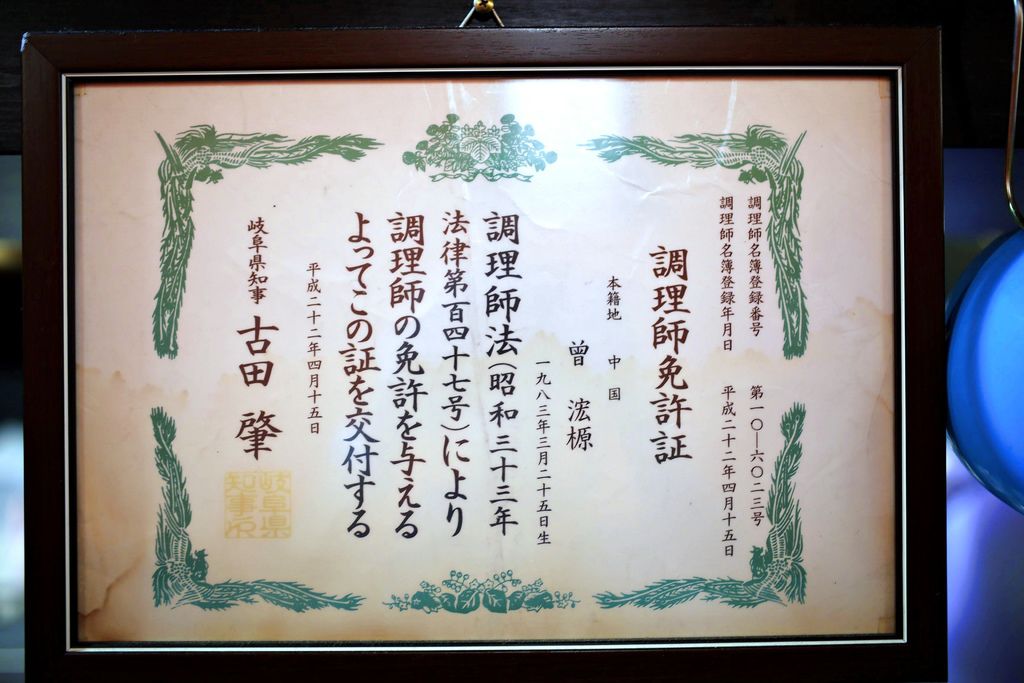 調理師名簿登録番号 第一〇―六〇二三号
調理師名簿登録年月日 平成二十二年四月十五日
調理師免許証
本籍地 中国
曾 浤榞
一九八三年三月二十五日生
調理師法(昭和三十三年
法律第百四十七号)により
調理師の免許を与える
よってこの証を交付する
平成二十二年四月十五日
岐阜県知事 古田 肇
岐阜県
知事之印